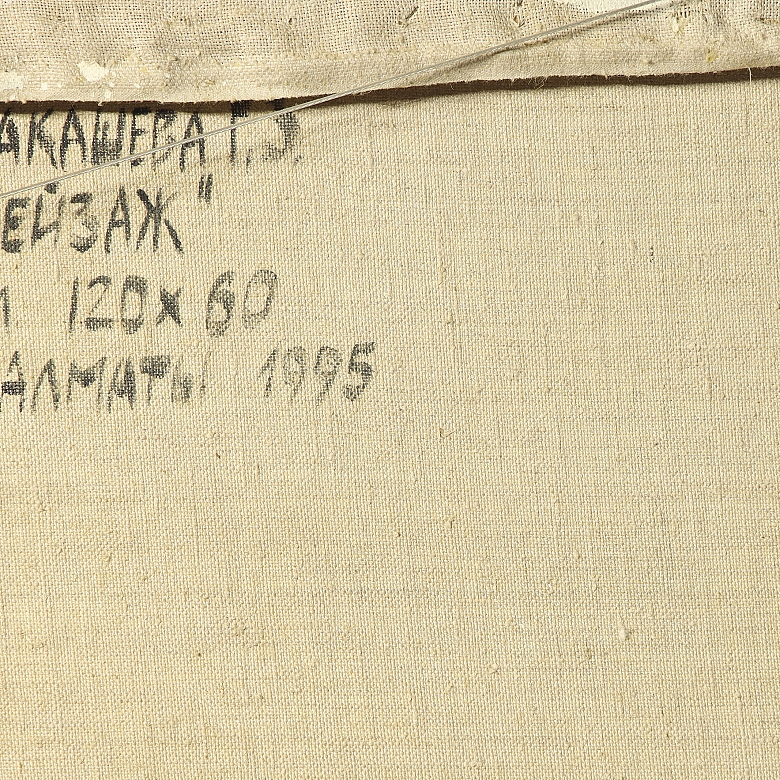 АКАШЕВА Г.З.
ЕЙЗАЖ"
120 × 60
АЛМАТЫ 1995